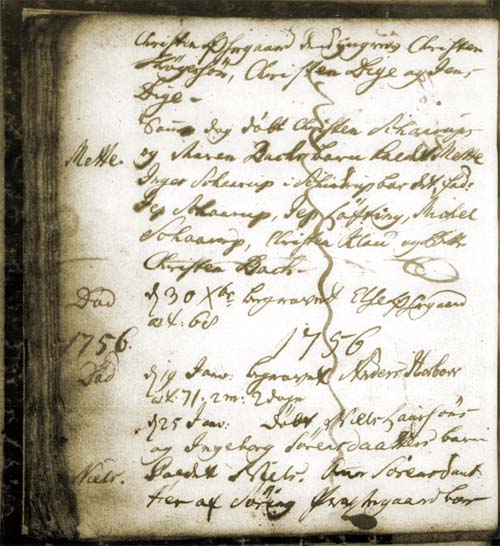 Christen Ørgaard den yngre, Christen
Høgersøn, Christen Dige og Jens
Dige.
Samme dag døbt Christen Schaarups
Mette. og Maren Bachs barn kaldet Mette
Inger Schaarup i Schindrup bar det, fad:
Jep Schaarup, Jep Løfting, Michel
Schaarup, Christen Klau og
Christen Bach.
Død d 30 Xbr begravet Else Ørgaard
æt: 68
1756. 1756
Død d 19 Janv: begravet Anders Harboe
æt: 71: 2 m: 2 dage
d 25 Janv: Døbt Niels Laursøns
og Ingeborg Sørensdaatters barn
Niels. kaldet Niels. Ane Sørensdaat-
ter af Søring Præstegaard bar